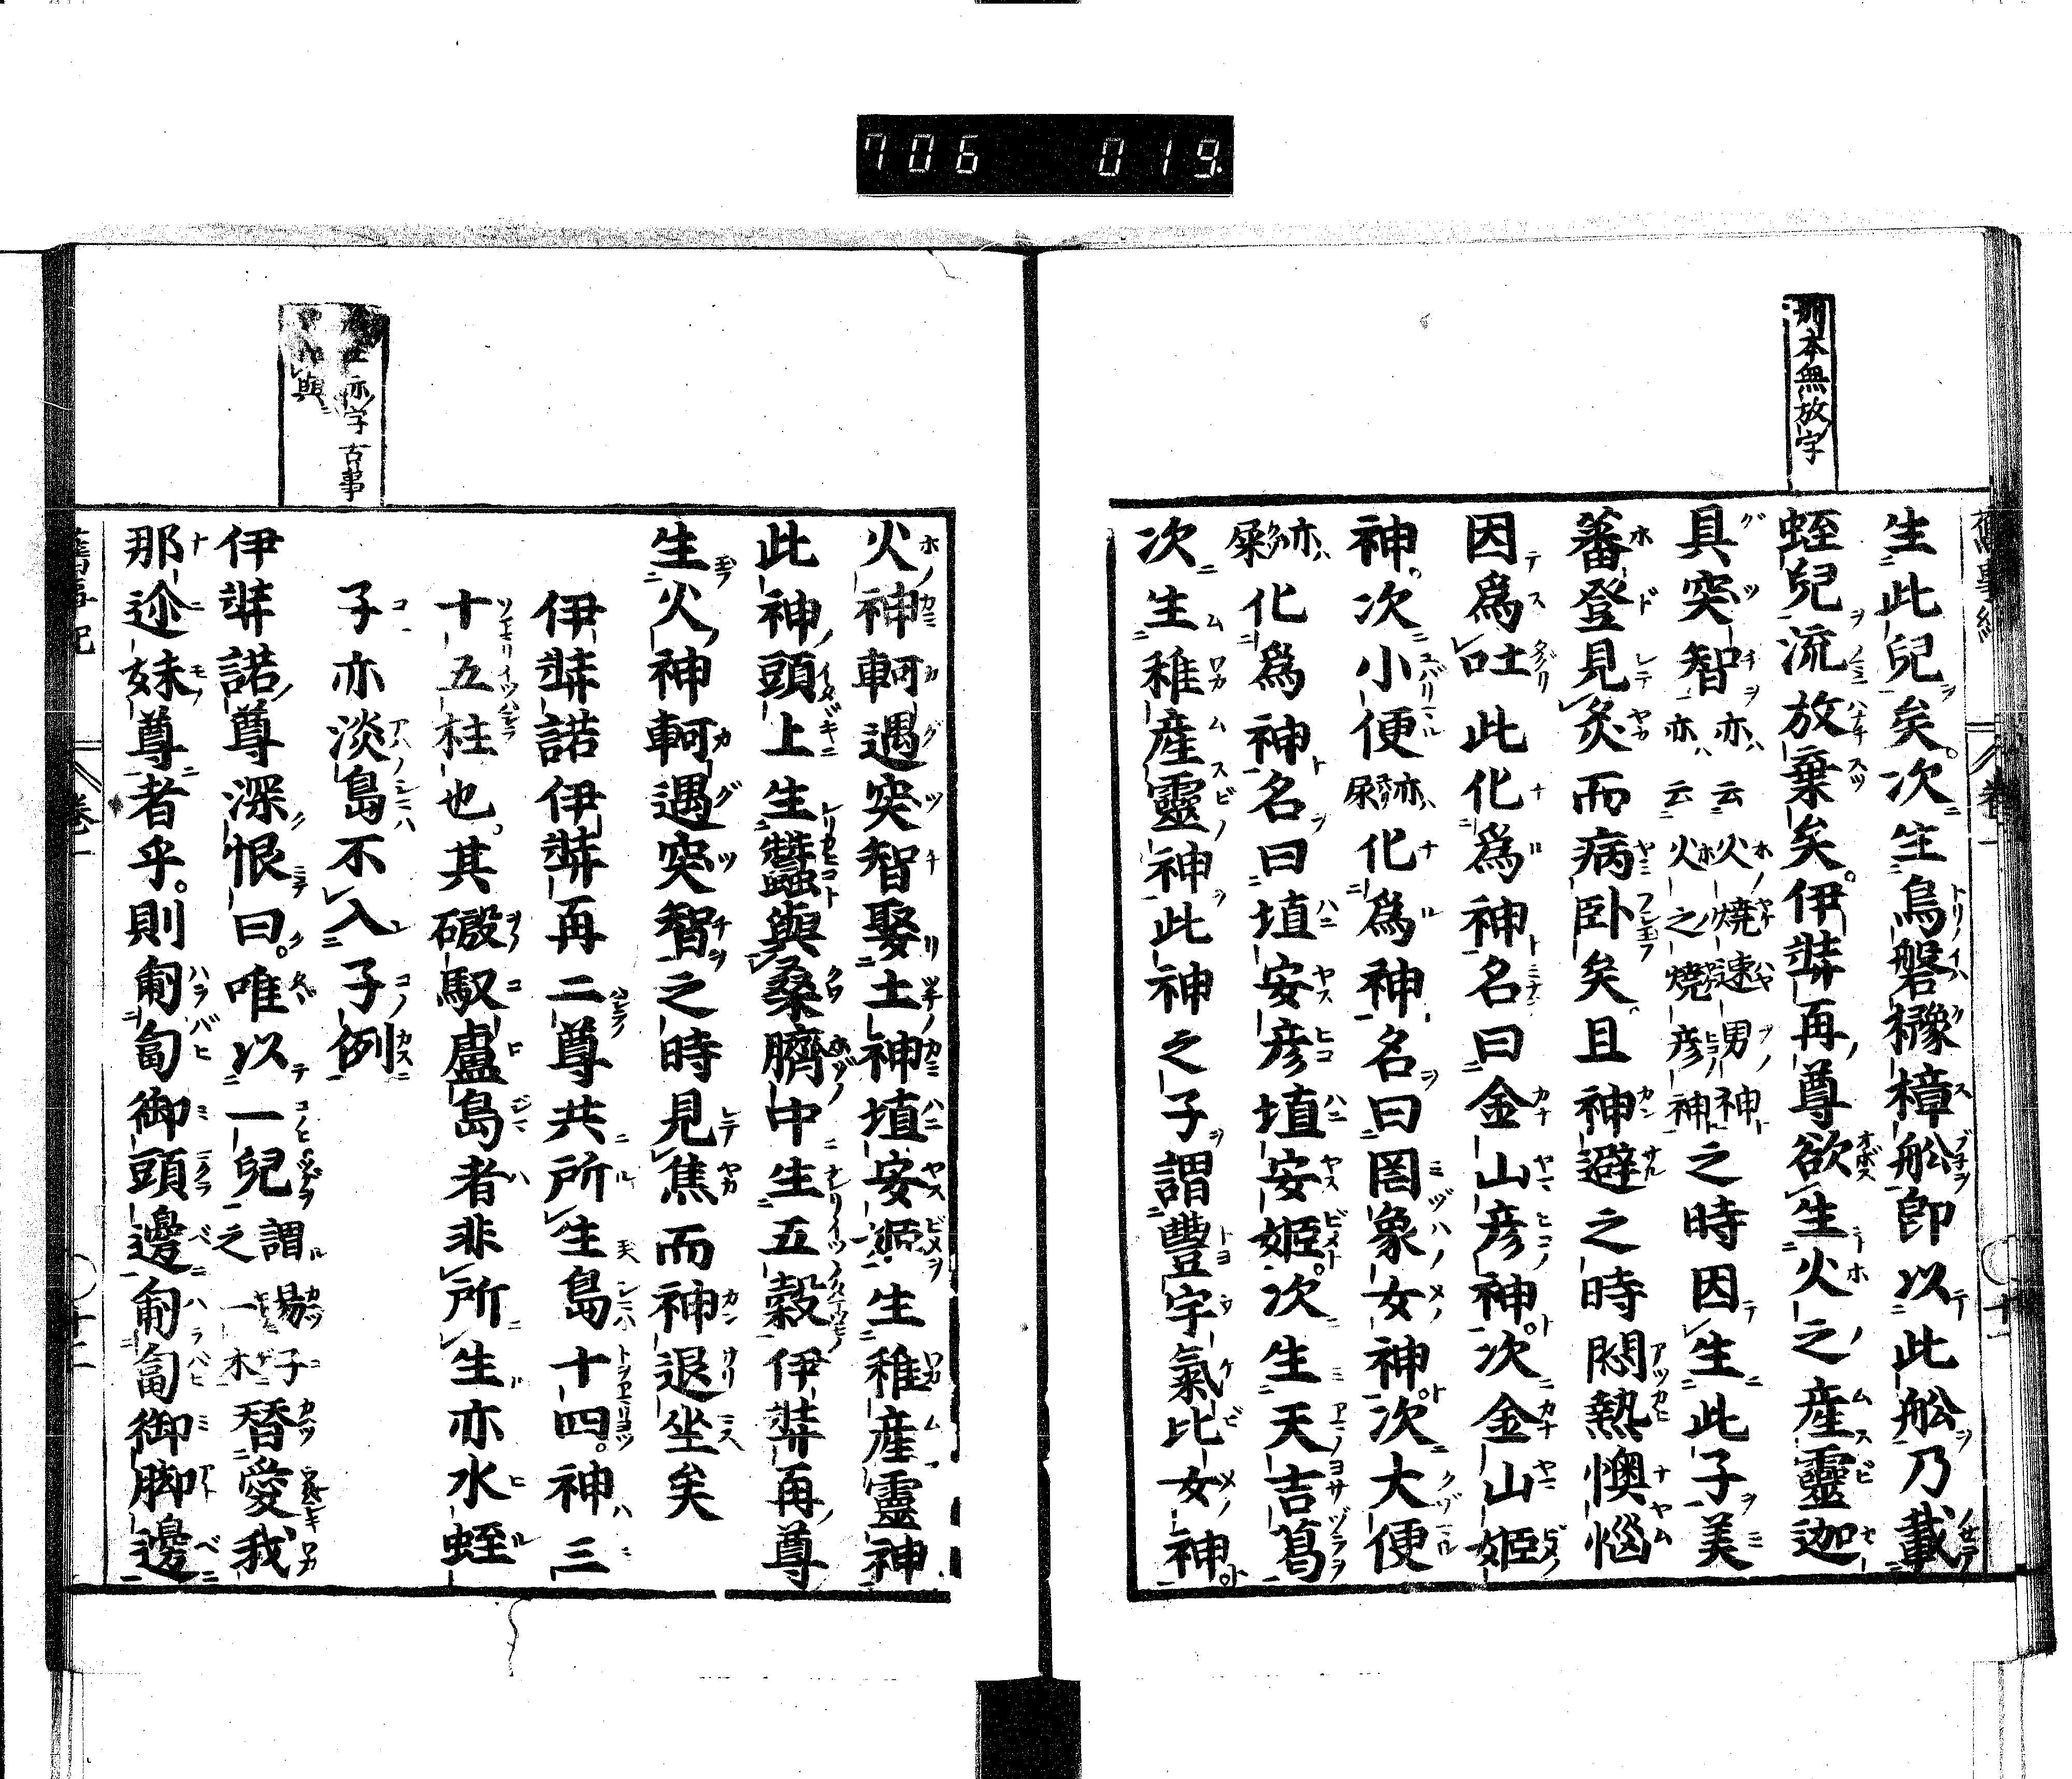 706 019
別本無放字
生此兒矣。次生鳥磐櫲樟舩即以此舩乃載
蛭兒流放棄矣。伊弉再尊欲生火之産靈迦
具突智亦云火燒速男神亦云火之燒彦神之時因生此子美
蕃登見炙而病卧矣且神避之時悶熱懊惱
因爲吐此化爲神名曰金山彦神。次金山姬
神。次小便亦尿化爲神名曰罔象女神。次大便
亦屎化爲神名曰埴安彦埴安姬。次生天吉葛
次生稚產靈神此神之子謂豐宇氣比女神。
亦字古事
與
火神軻遇突智娶土神埴安姬生稚產靈神
此神頭上生蠶與桑臍中生五穀伊弉再尊
生火神軻遇突智之時見焦而神退坐矣
伊弉諾伊弉再二尊共所生島十四。神三
十五柱也。其磤馭盧島者非所生亦水蛭
子亦淡島不入子例
伊弉諾尊深恨曰。唯以一兒謂易子之一木替愛我
那迩妹尊者乎。則匍匐御頭邊匍匐御脚邊
舊事紀 卷一 十二